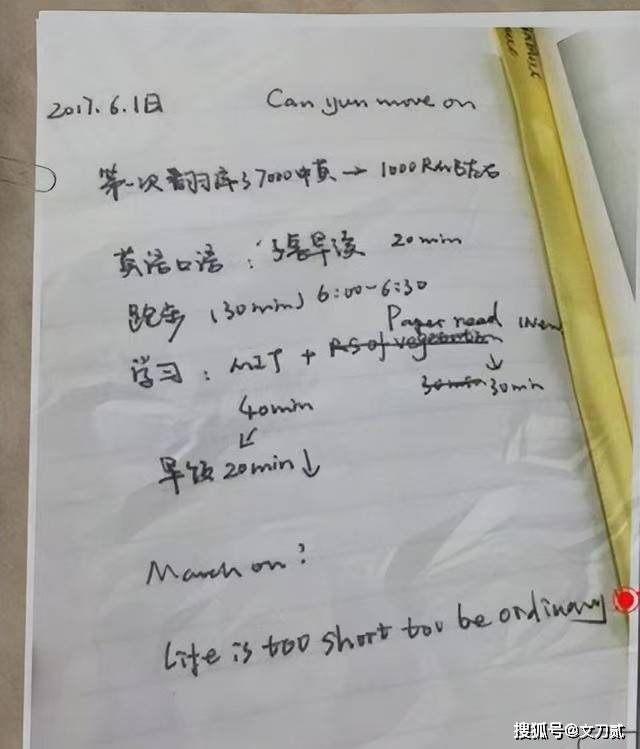 2017.6.1日
Can yun move on
第一次翻 7000 页 → 1000RMB左右
英语口语: 早读 20min
跑步 (30min) 6:00-6:30
Paper read
学习: MIT + RS of vegeation
40min
30min 30min
↙ ↓
早饭 20min ↓
March on!
Life is too short too be ordinary
搜狐号@文刀贰